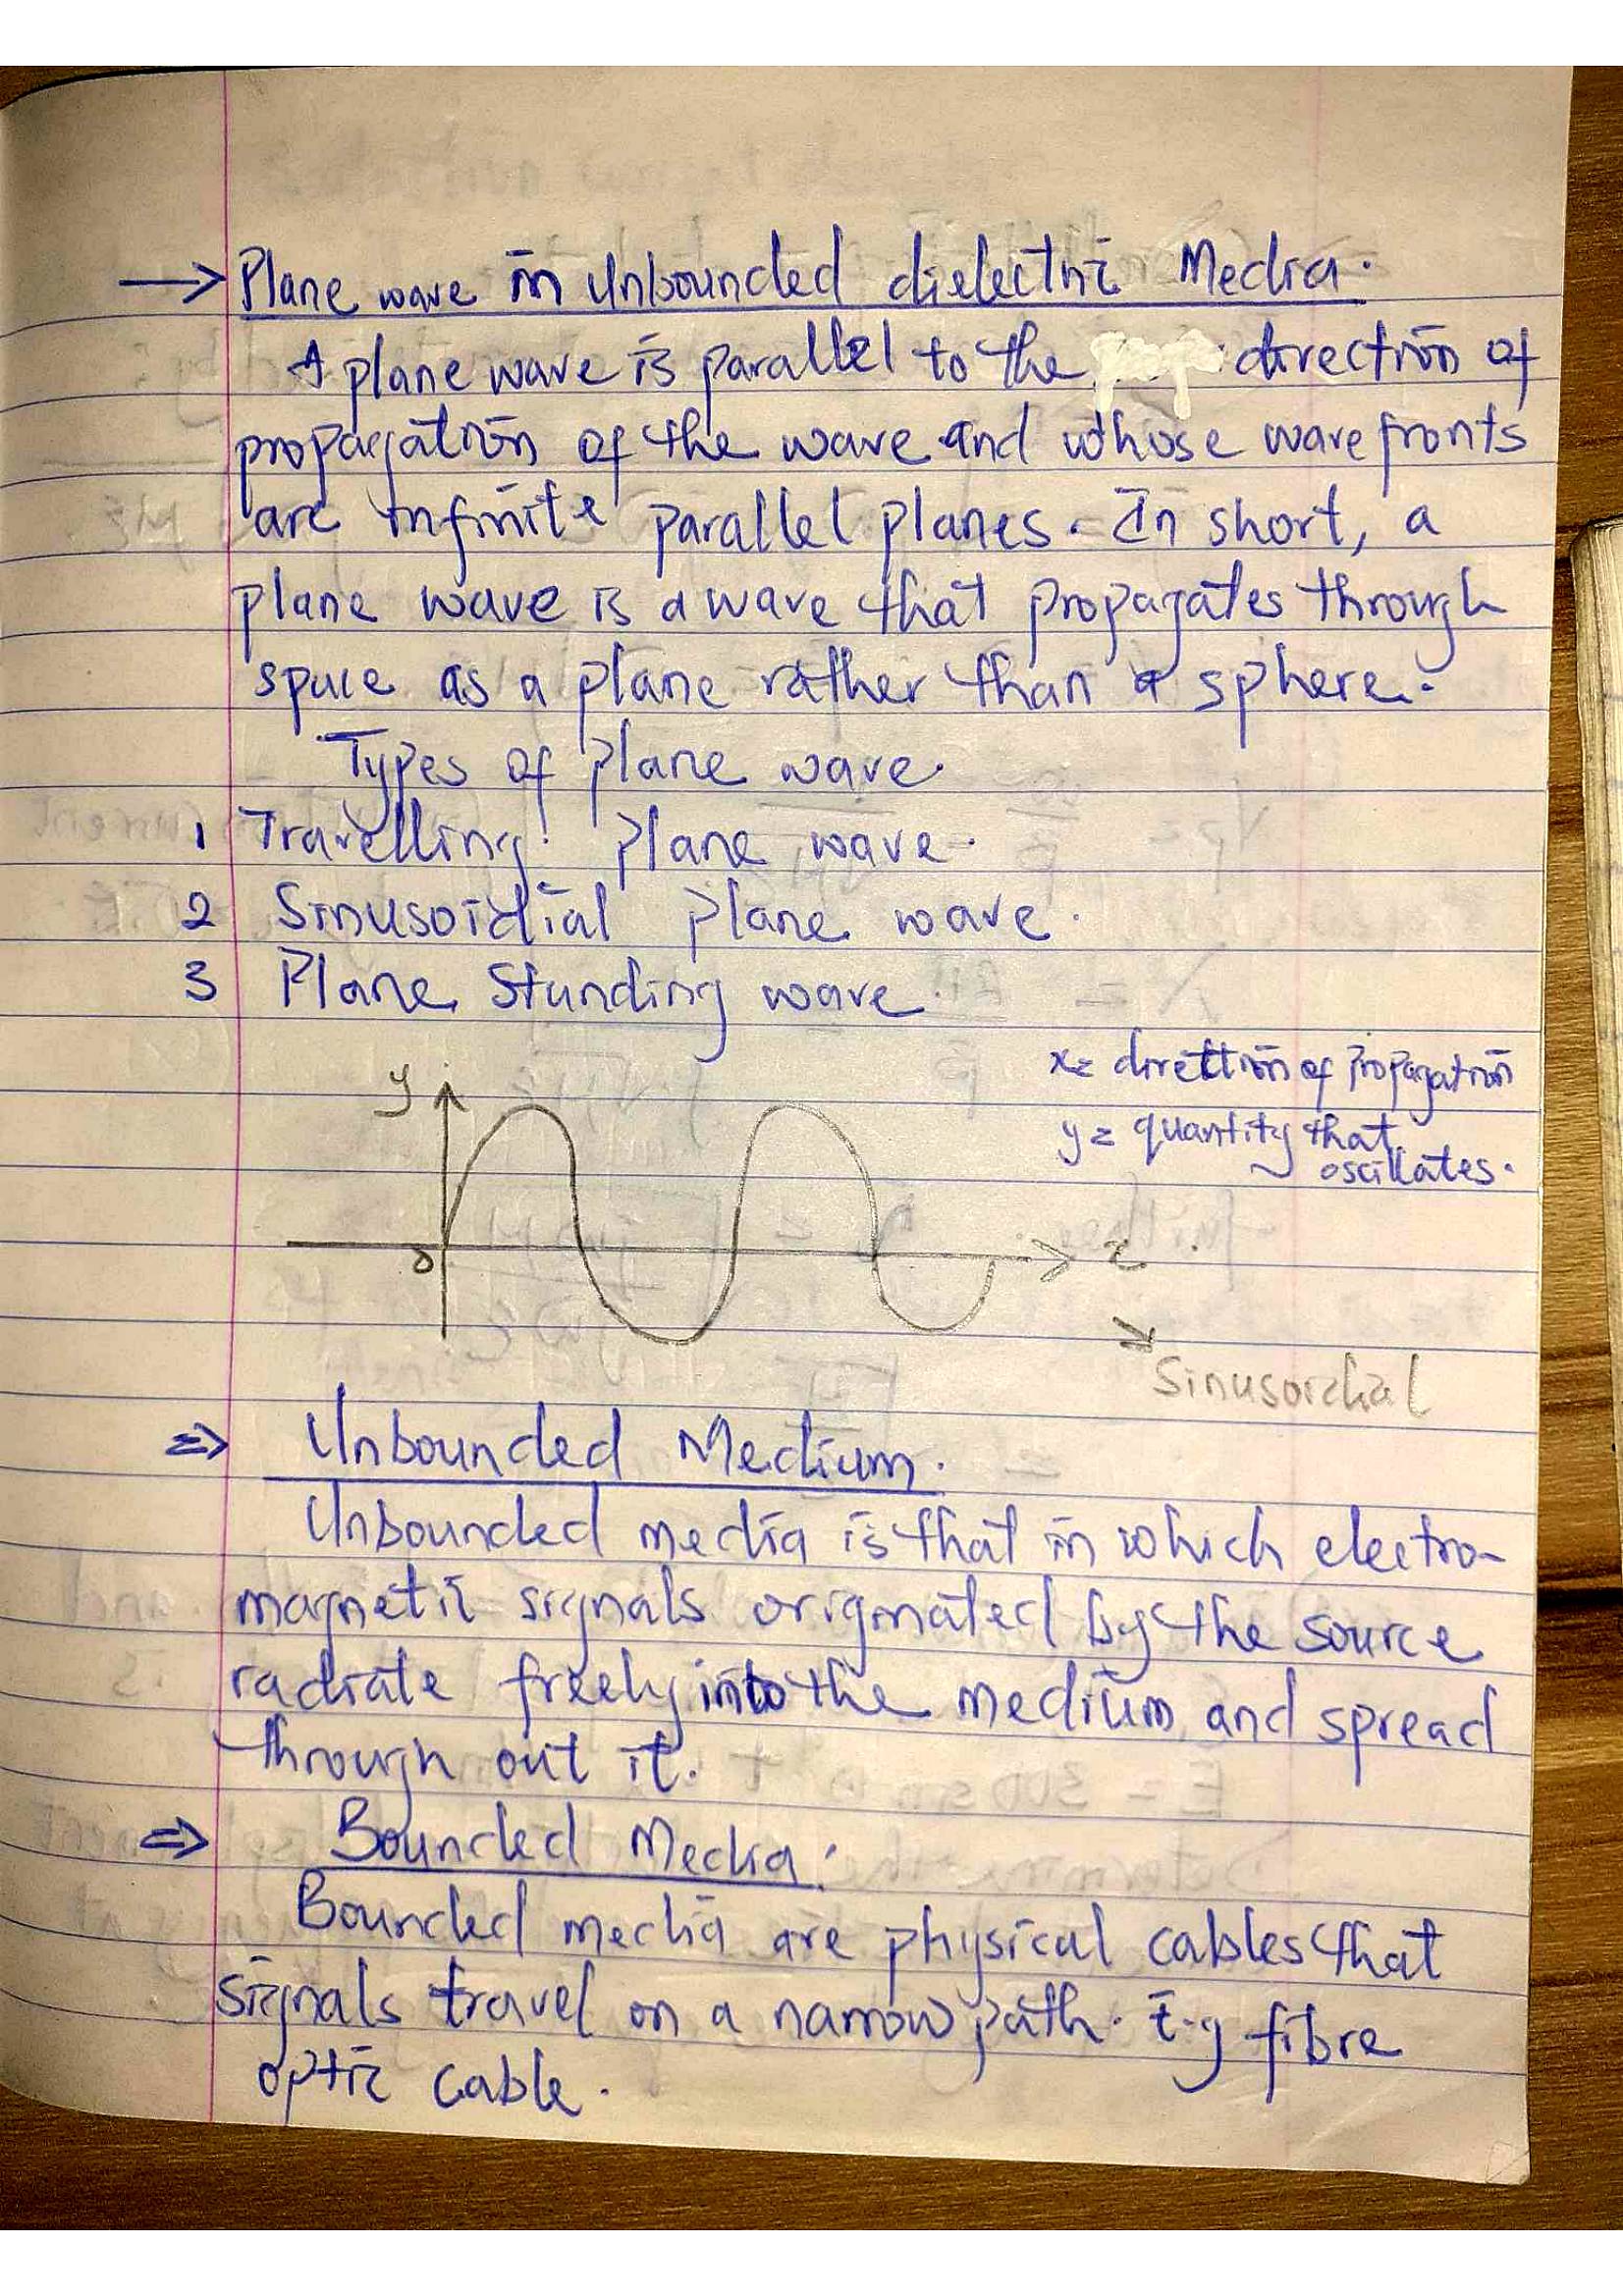 → Plane wave in Unbounded dielectric Media.
A plane wave is parallel to the direction of
propagation of the wave and whose wavefronts
are infinite parallel planes. In short, a
plane wave is a wave that propagates through
space as a plane rather than a sphere.
Types of plane wave.
1 Travelling plane wave.
2 Sinusoidial plane wave.
3 Plane Standing wave.
x = direction of propagation
y = quantity that
oscillates.
y
0
x
Sinusoidial
⇒ Unbounded Medium.
Unbounded media is that in which electro-
magnetic signals originated by the source
radiate freely into the medium and spread
through out it.
⇒ Bounded Media:
Bounded media are physical cables that
signals travel on a narrow path. E.g fibre
optic cable.